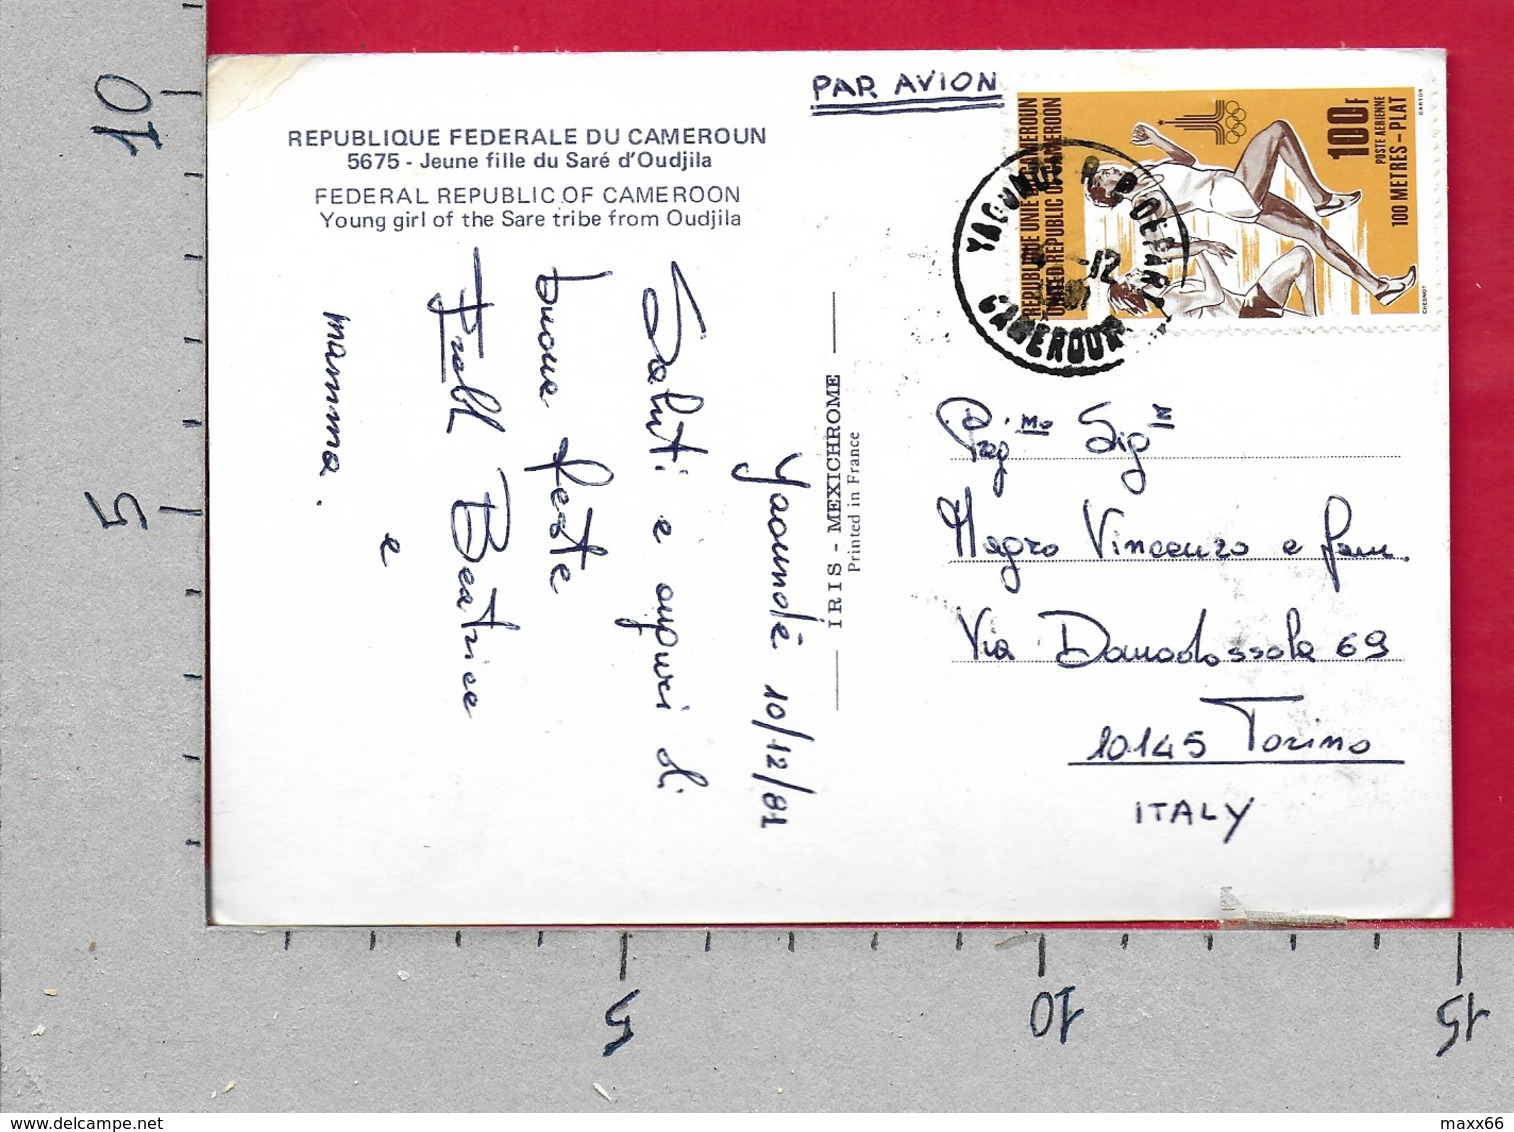 PAR AVION
REPUBLIQUE FEDERALE DU CAMEROUN
5675 - Jeune fille du Saré d'Oudjila
FEDERAL REPUBLIC OF CAMEROON
Young girl of the Sare tribe from Oudjila
Yaoundè 10/12/81
Saluti e auguri di
buone feste
Beatrice
e
mamma.
IRIS - MEXICHROME
Printed in France
REPUBLIQUE UNIE DU CAMEROUN
UNITED REPUBLIC OF CAMEROON
100F
POSTE AERIENNE
100 METRES - PLAT
CARTOR
CHESNOT
YAOUNDE R.P DEPART
-12
CAMEROUN
Preg.mo Sig.
Magro Vincenzo e fam.
Via Domodossola 69
10145 Torino
ITALY
10
5
5
10
15
maxx66